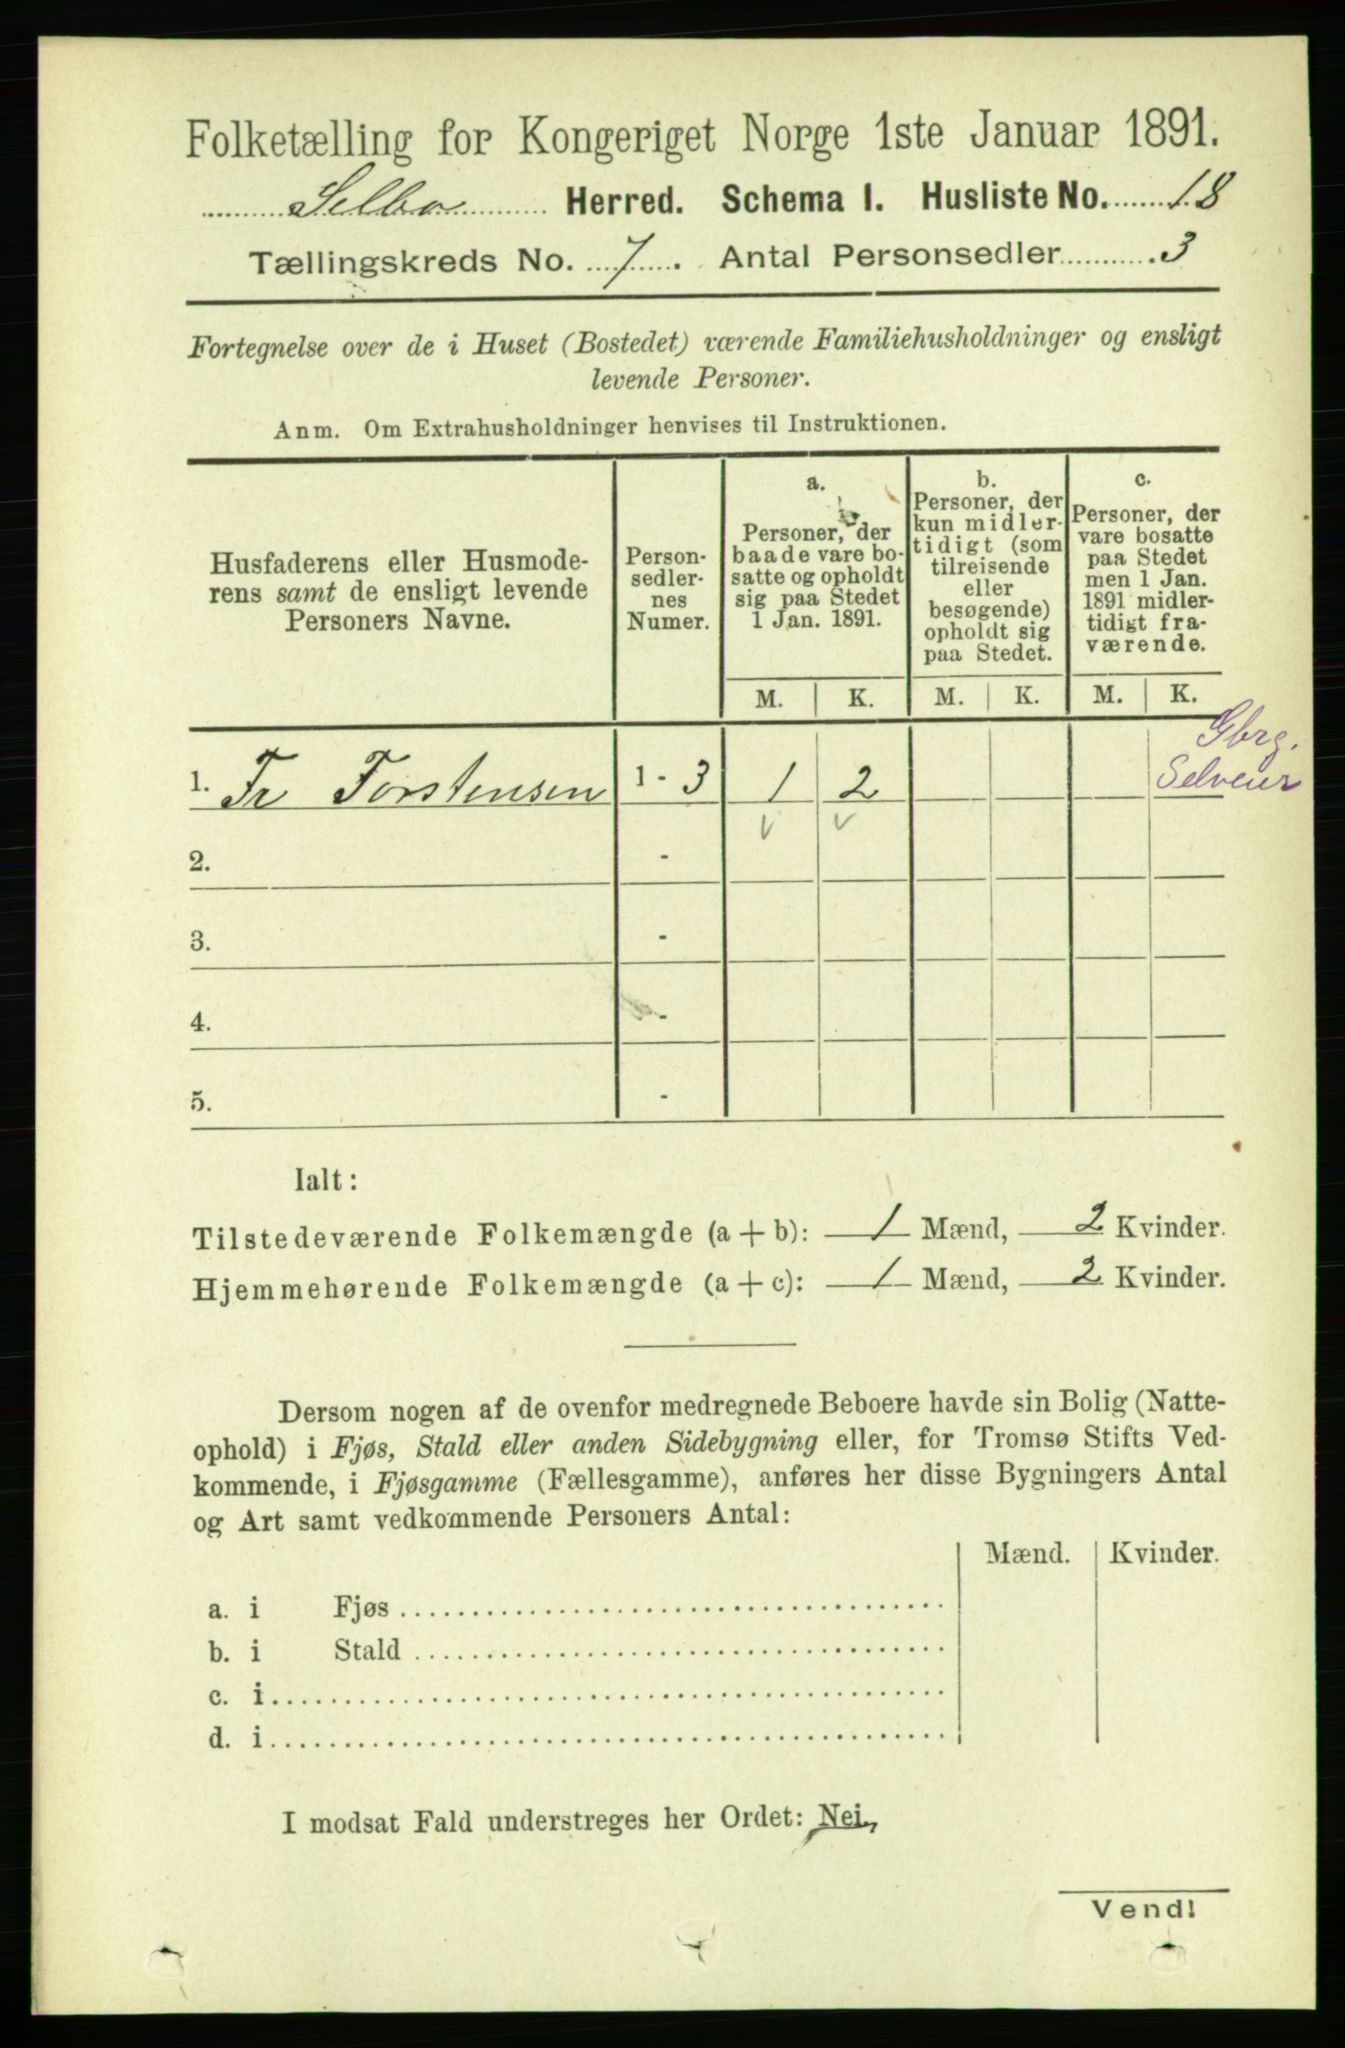 Folketælling for Kongeriget Norge 1ste Januar 1891.
Selbo Herred. Schema I. Husliste No. 18
Tællingskreds No. 7. Antal Personsedler 3
Fortegnelse over de i Huset (Bostedet) værende Familiehusholdninger og ensligt
levende Personer.
Anm. Om Extrahusholdninger henvises til Instruktionen.
Husfaderens eller Husmode-
rens samt de ensligt levende
Personers Navne.
Person-
sedler-
nes
Numer.
a.
Personer, der
baade vare bo-
satte og opholdt
sig paa Stedet
1 Jan. 1891.
b.
Personer, der
kun midler-
tidigt (som
tilreisende
eller
besøgende)
opholdt sig
paa Stedet.
c.
Personer, der
vare bosatte
paa Stedet
men 1 Jan.
1891 midler-
tidigt fra-
værende.
M. K. M. K. M. K.
Gbrg.
Selveier
1. Fr Torstensen 1 - 3 1 2
2. -
3. -
4. -
5. -
Ialt:
Tilstedeværende Folkemængde (a + b): 1 Mænd, 2 Kvinder.
Hjemmehørende Folkemængde (a + c): 1 Mænd, 2 Kvinder.
Dersom nogen af de ovenfor medregnede Beboere havde sin Bolig (Natte-
ophold) i Fjøs, Stald eller anden Sidebygning eller, for Tromsø Stifts Ved-
kommende, i Fjøsgamme (Fællesgamme), anføres her disse Bygningers Antal
og Art samt vedkommende Personers Antal:
Mænd. Kvinder.
a. i Fjøs
b. i Stald
c. i
d. i
I modsat Fald understreges her Ordet: Nei.
Vend!